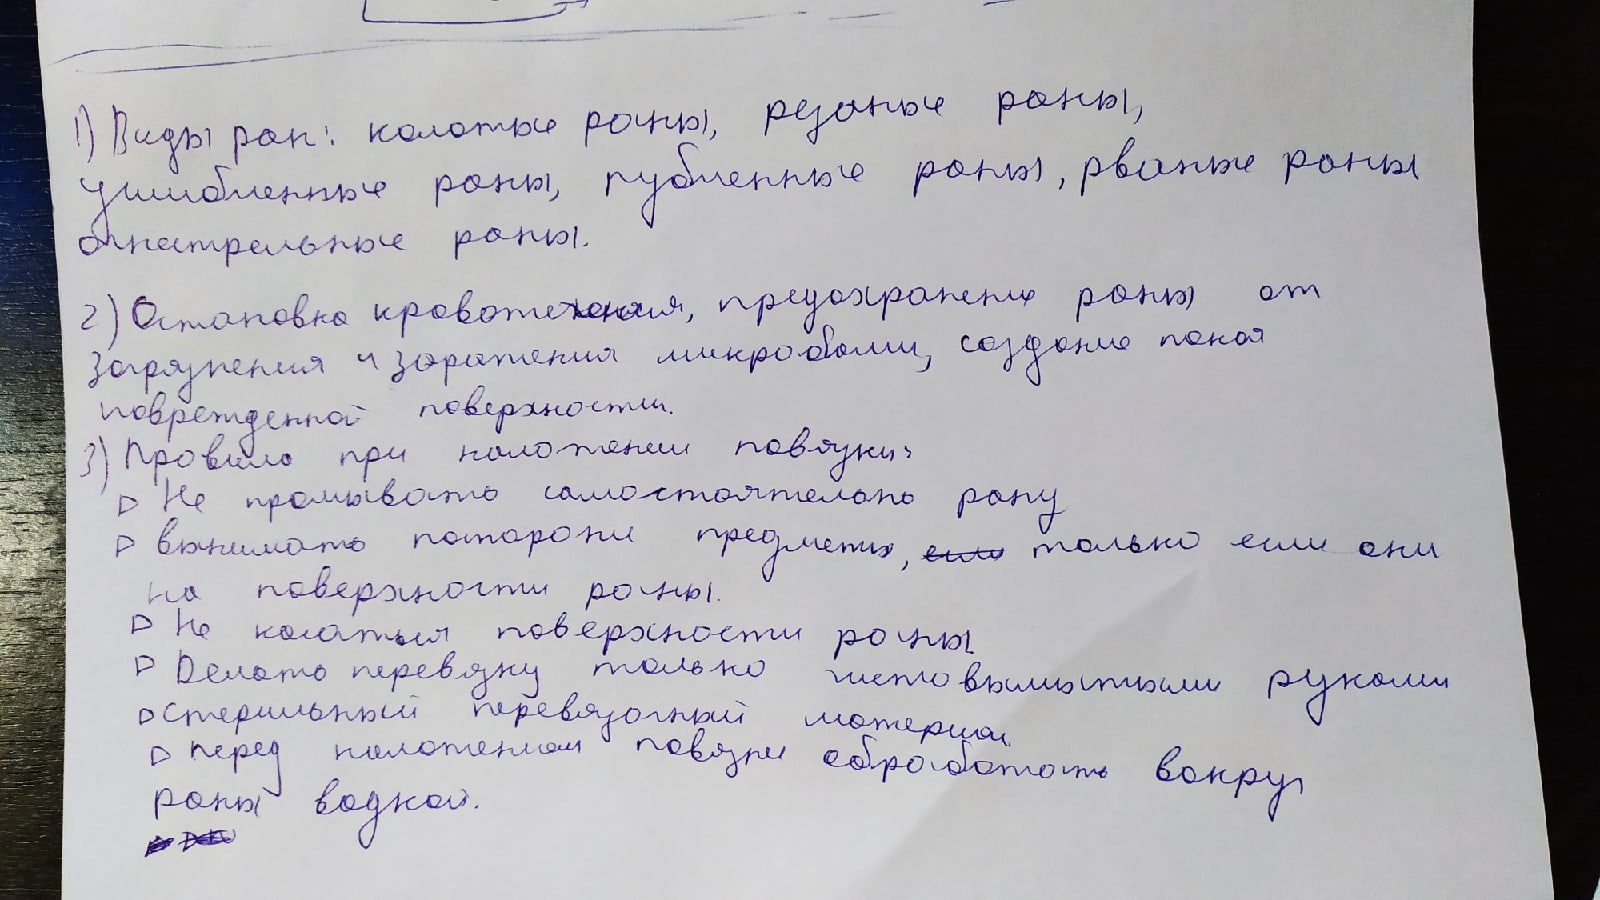 1) Виды ран: колотые раны, резаные раны,
ушибленные раны, рубленные раны, рваные раны
огнестрельные раны.
2) Остановка кровотечения, предохранение раны от
загрязнения и заражения микробами, создание покоя
поврежденной поверхности.
3) Правила при наложении повязки:
▷ Не промывать самостоятельно рану
▷ вынимать посторони предметы, только если они
на поверхности раны.
▷ Не касаться поверхности раны
▷ Делать перевязку только чисто вымытыми руками
▷ стерильный перевязочный материал
▷ перед наложением повязки обработать вокруг
раны водкой.